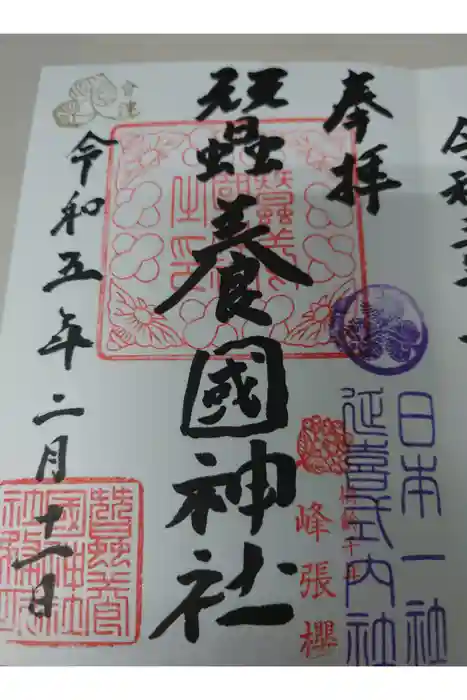 奉拝
日本一社
延喜式内社
峰張櫻
蠶養國神社
會津
令和五年二月十一日